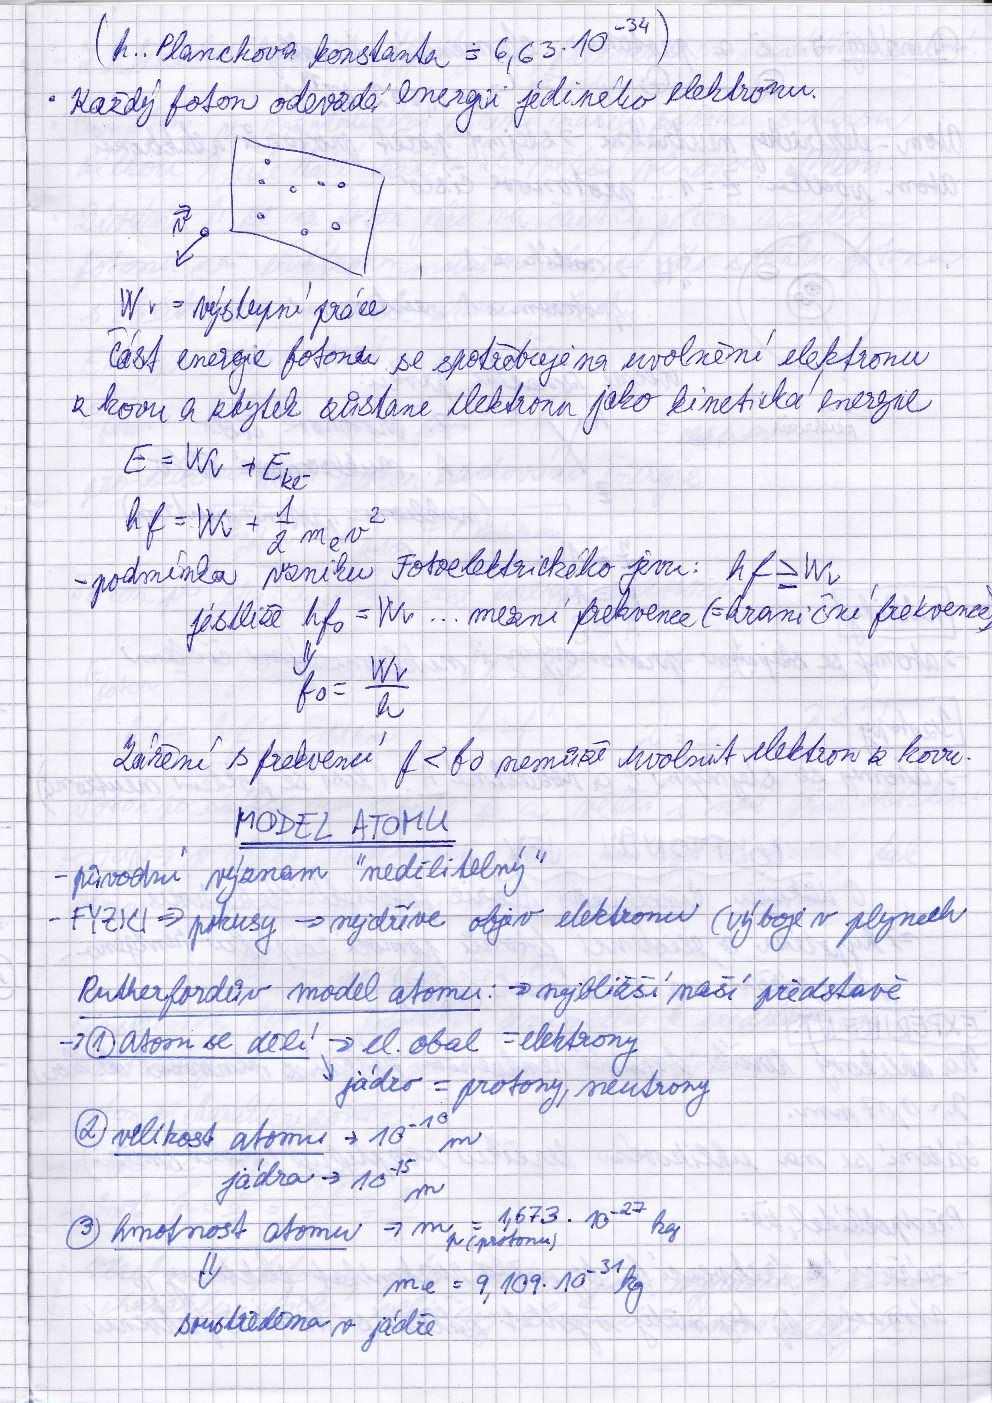 (h.. Planckova konstanta ≐ 6,63·10⁻³⁴)
• Každý foton odevzdá energii jedineho elektronu.
v⃗
Wv = výstupní práce
Část energie fotonu se spotřebuje na uvolnění elektronu
z kovu a zbytek zůstane elektronu jako kinetická energie
E = Wv + Eke⁻
hf = Wv + 1/2 mₑv²
- podmínka vzniku Fotoelektrického jevu: hf ≧ Wv
jestliže hf₀ = Wv ... mezní frekvence (= hraniční frekvence)
⇓
f₀ = Wv/h
Záření s frekvencí f < f₀ nemůže uvolnit elektron z kovu.
MODEL ATOMU
- původní význam "nedělitelný"
- FYZICI ⇒ pokusy → nejdříve objev elektronu (výboje v plynech
Rutherfordův model atomu: → nejbližší naší představě
→ ① atom se dělí → el. obal = elektrony
↘ jádro = protony, neutrony
② velikost atomu → 10⁻¹⁰ m
jádra → 10⁻¹⁵ m
③ hmotnost atomu → mp (protonu) = 1,673 · 10⁻²⁷ kg
⇓ me = 9,109·10⁻³¹ kg
soustředěna v jádře